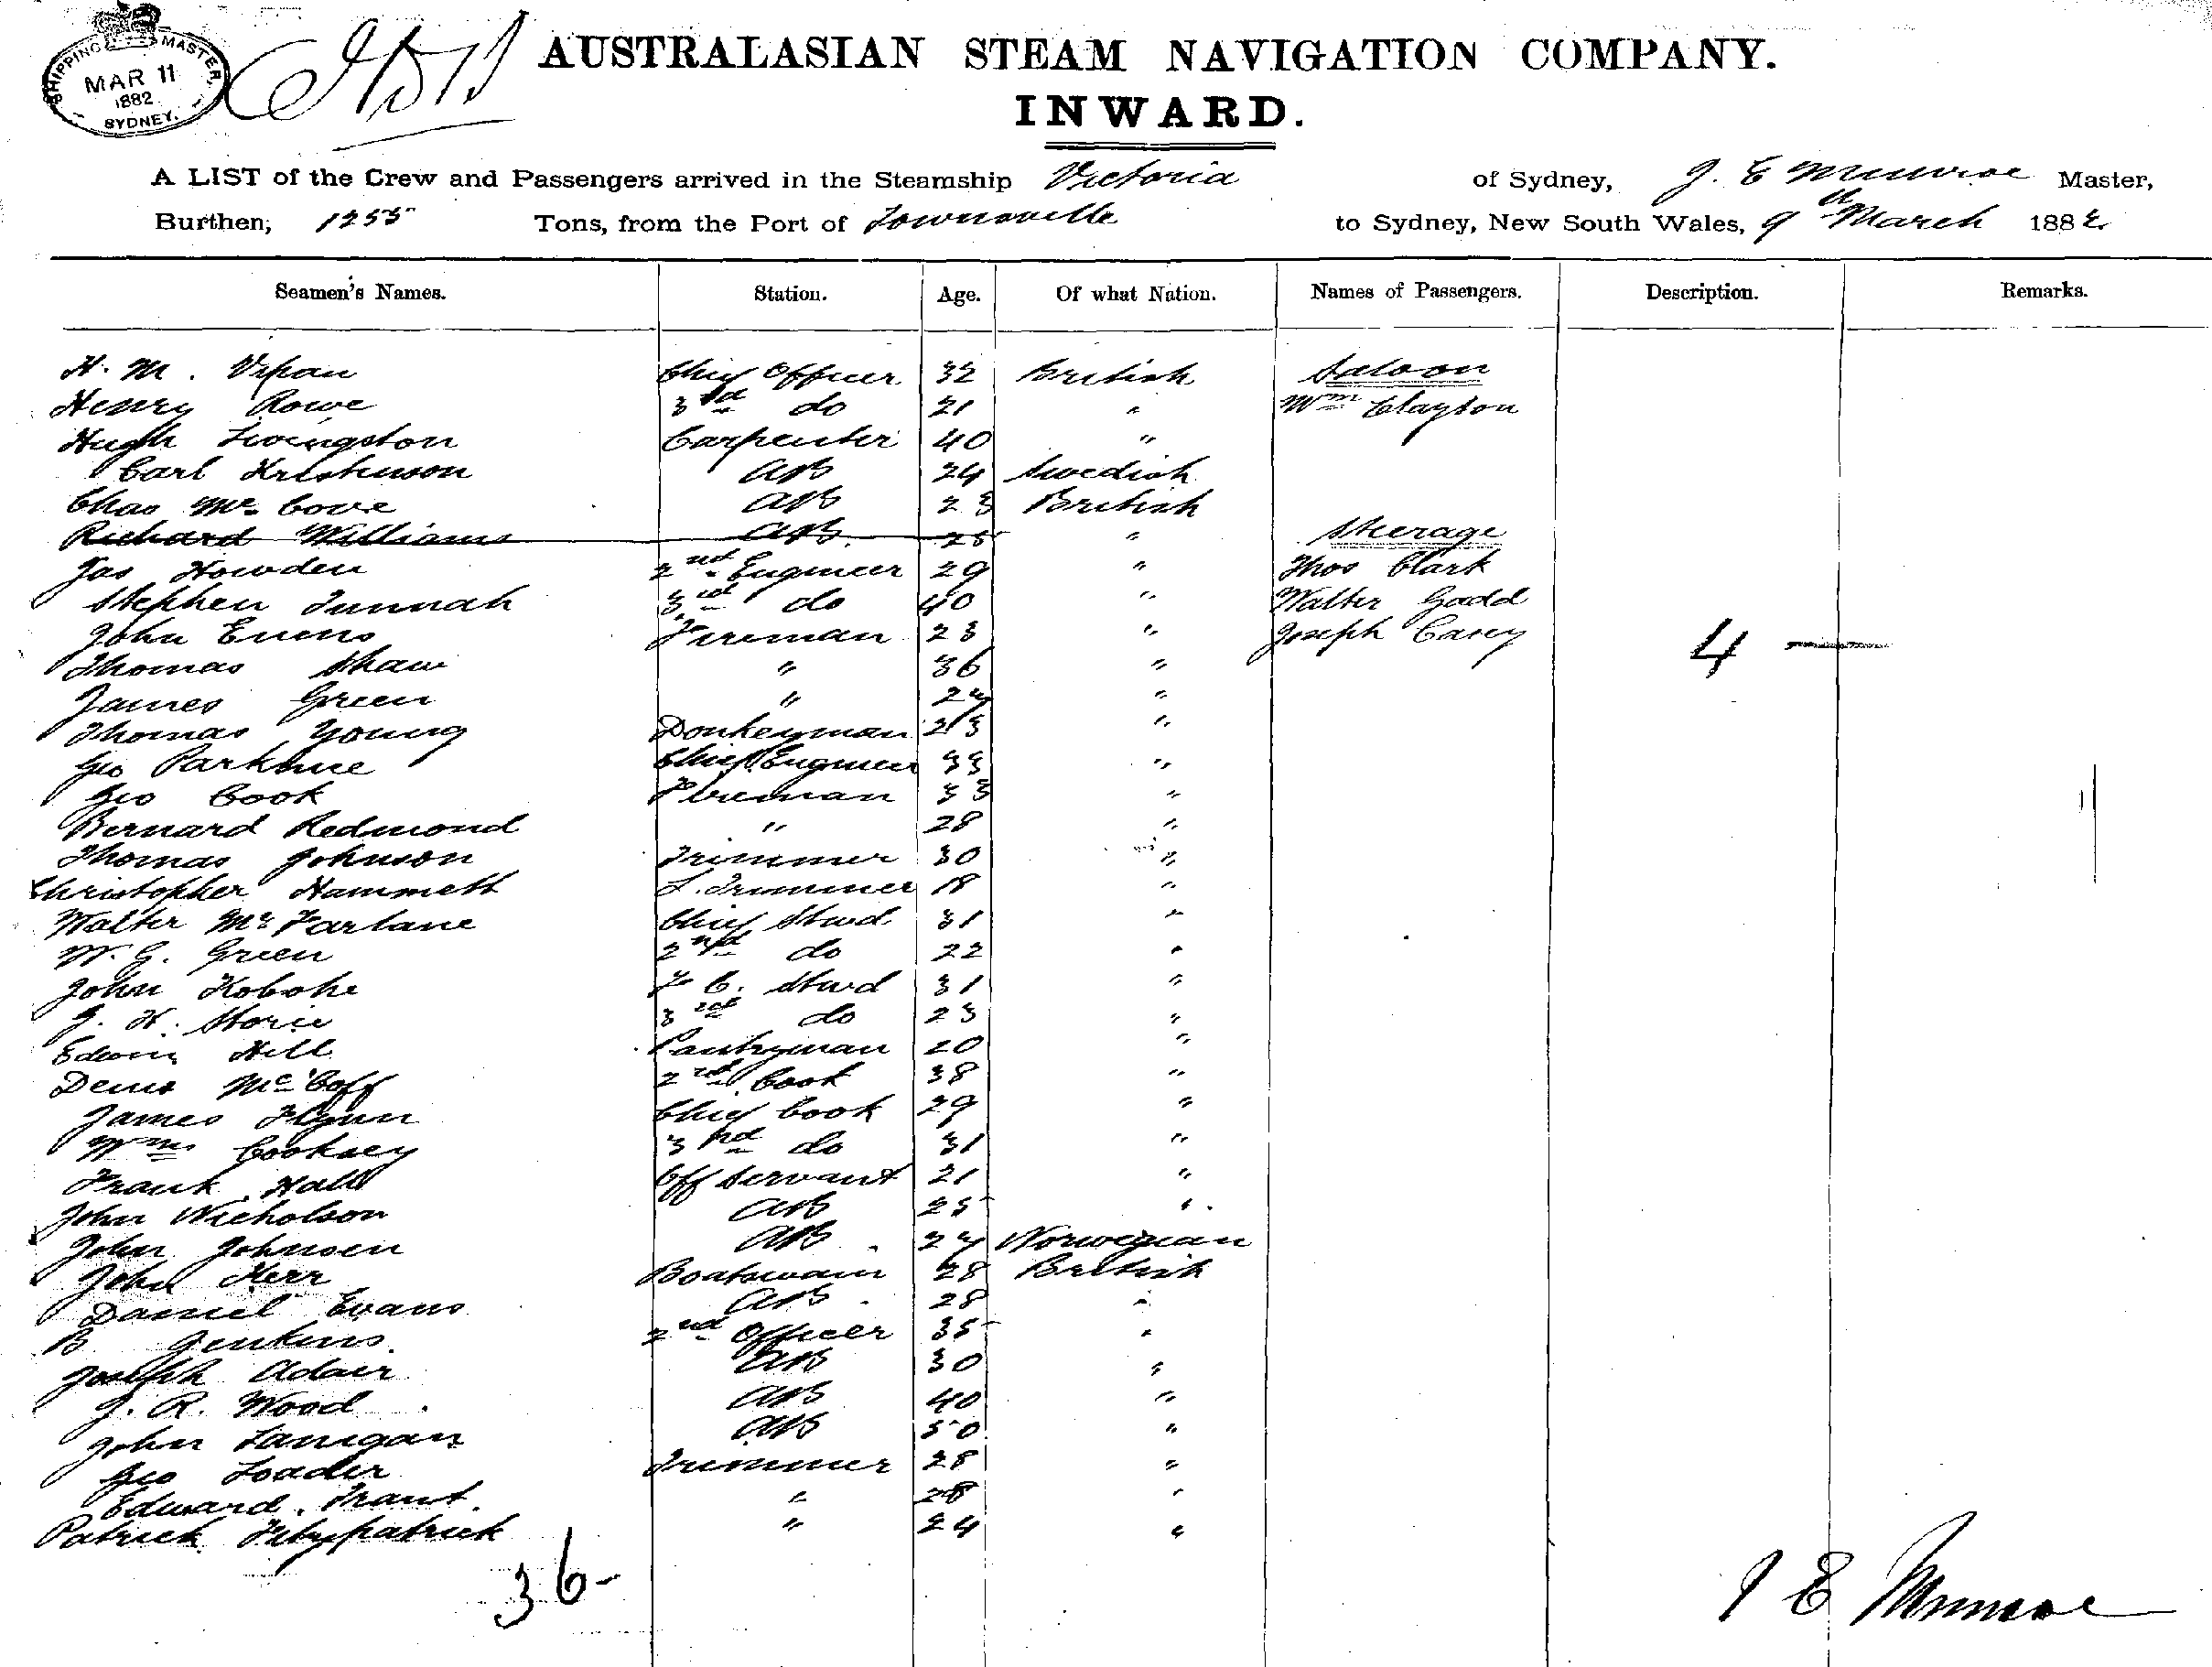 SHIPPING MASTER,
MAR 11
1882
SYDNEY.
AUSTRALASIAN STEAM NAVIGATION COMPANY.
INWARD.
A LIST of the Crew and Passengers arrived in the Steamship Victoria of Sydney, J. E Munroe Master,
Burthen, 1255 Tons, from the Port of Townsville to Sydney, New South Wales, 9th March 1882
Seamen's Names. Station. Age. Of what Nation. Names of Passengers. Description. Remarks.
H. M. Vipan Chief Officer 32 British Saloon
Henry Rowe 3rd do 21 " Wm Clayton
Hugh Livingston Carpenter 40 "
Carl Kristenson AB 24 Swedish
Chas Mc Cove AB 23 British
Richard Williams AB 25 " Steerage
Jas Howden 2nd Engineer 29 " Thos Clark
Stephen Tunnah 3rd do 40 " Walter Gadd
John Evens Fireman 23 " Joseph Carey 4
Thomas Shaw " 36 "
James Green " 24 "
Thomas Young Donkeyman 23 "
Geo Parkhouse Chief Engineer 33 "
Geo Cook Fireman 33 "
Bernard Redmond " 28 "
Thomas Johnson Trimmer 30 "
Christopher Hammett L. Trimmer 18 "
Walter Mc Farlane Chief Stwd 31 "
W. G. Green 2nd do 22 "
John Kobohe F C. Stwd 31 "
J. H. Storie 3rd do 23 "
Edwin Hill Pantryman 20 "
Denis McGoff 2nd Cook 38 "
James Flynn Chief Cook 29 "
Wm Cooksey 3rd do 31 "
Frank Hall Off Servant 21 "
John Nicholson AB 25 "
John Johnsen AB 27 Norwegian
John Kerr Boatswain 28 British
Daniel Evans AB 28 "
B Jenkins 2nd Officer 35 "
Joseph Adair AB 30 "
J. R. Wood AB 40 "
John Lanigan AB 50 "
Geo Loader Trimmer 28 "
Edward Frant " 28 "
Patrick Fitzpatrick " 24 "
36-
J E Munroe